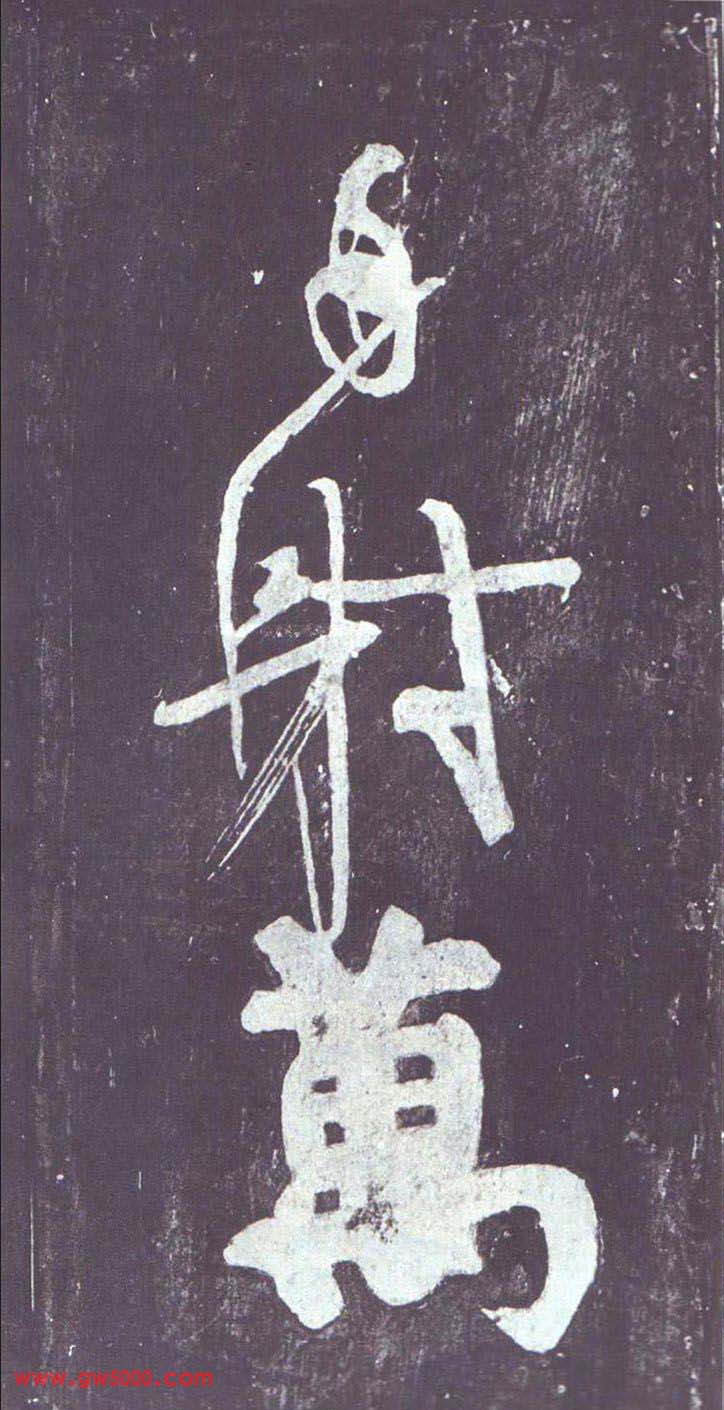 再射萬
www.gw5000.com